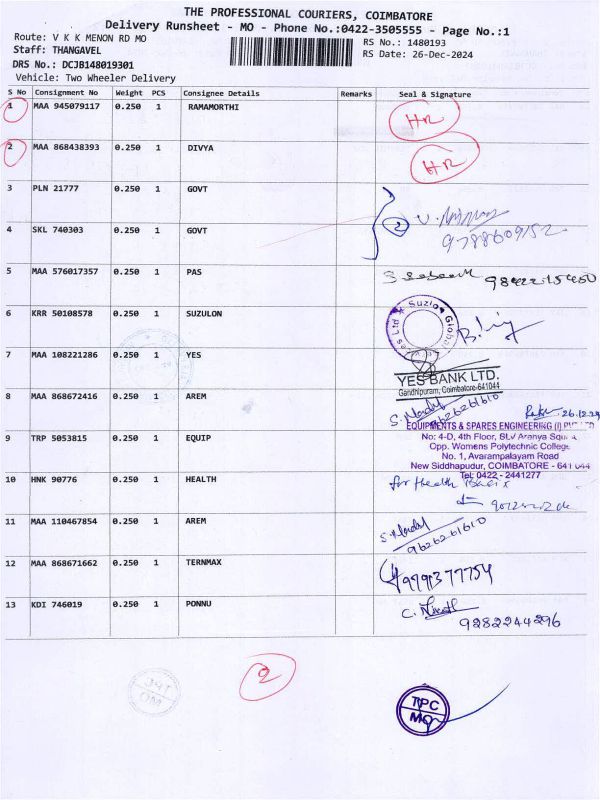 THE PROFESSIONAL COURIERS, COIMBATORE
Delivery Runsheet - MO - Phone No.:0422-3505555 - Page No.:1
Route: V K K MENON RD MO
Staff: THANGAVEL
RS No.: 1480193
RS Date: 26-Dec-2024
DRS No.: DCJB148019301
Vehicle: Two Wheeler Delivery
S No Consignment No Weight PCS Consignee Details Remarks Seal & Signature
1 MAA 945079117 0.250 1 RAMAMORTHI HR
2 MAA 868438393 0.250 1 DIVYA HR
3 PLN 21777 0.250 1 GOVT
2
4 SKL 740303 0.250 1 GOVT 9788609152
5 MAA 576017357 0.250 1 PAS 9842215450
6 KRR 50108578 0.250 1 SUZULON Suzlon Global
7 MAA 108221286 0.250 1 YES
YES BANK LTD.
Gandhipuram, Coimbatore-641044
8 MAA 868672416 0.250 1 AREM 9626261610
26.12.24
EQUIPMENTS & SPARES ENGINEERING (I) PVT LTD
9 TRP 5053815 0.250 1 EQUIP No: 4-D, 4th Floor, SLV Aranya Square
Opp. Womens Polytechnic College
No. 1, Avarampalayam Road
New Siddhapudur, COIMBATORE - 641 044
Tel: 0422 - 2441277
10 HNK 90776 0.250 1 HEALTH for Health
11 MAA 110467854 0.250 1 AREM 9626261610
12 MAA 868671662 0.250 1 TERNMAX 9791377754
13 KDI 746019 0.250 1 PONNU 9282244296
2
TPC
MO
TPC
MO